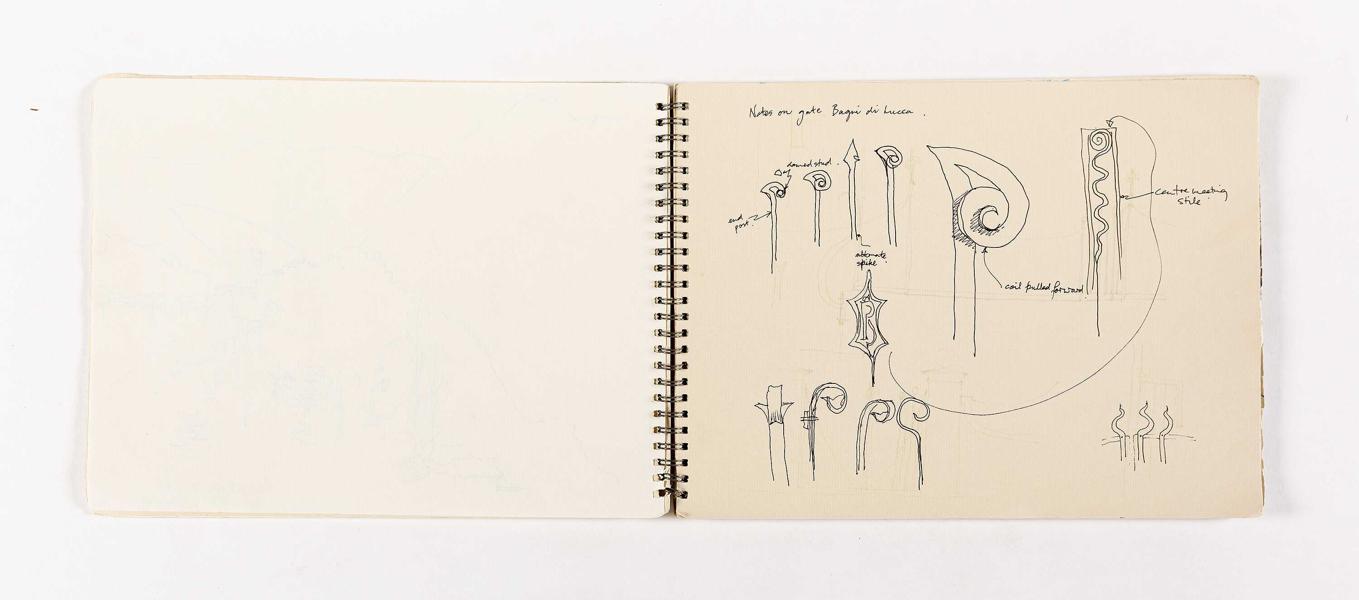 Notes on gate Bagni di Lucca .
domed stud .
end
post.
alternate
spike
coil pulled forward
centre meeting
stile